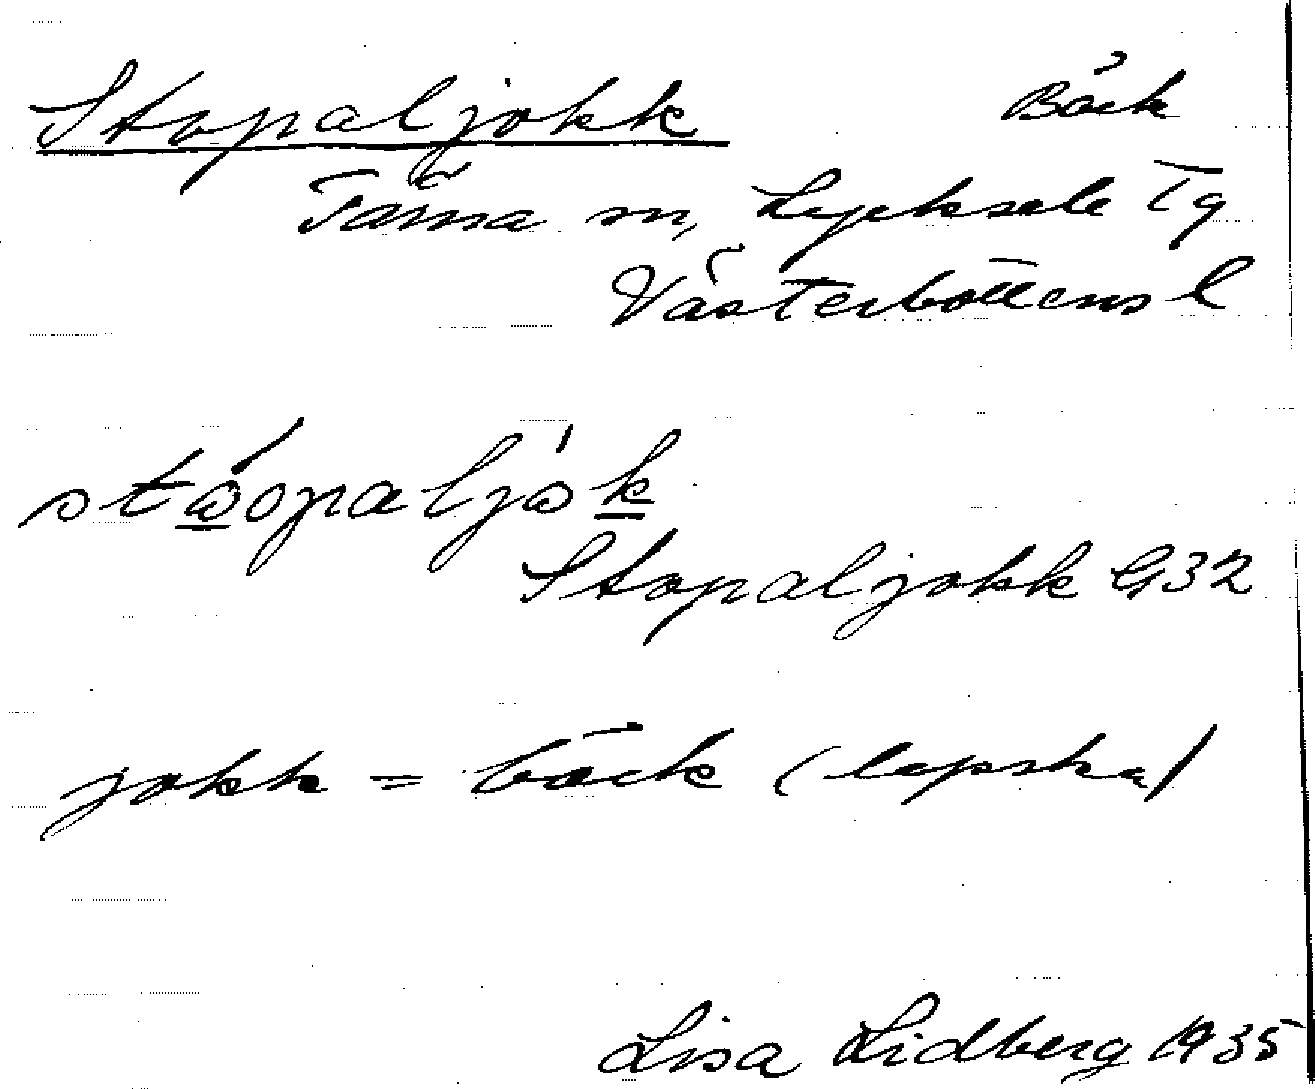 Stopaljokk Bäck
Tärna sn, Lycksele Tg
Västerbottens l
stǻopaljòk
Stopaljokk G32
jokk = bäck (lapska)
Lisa Lidberg 1935